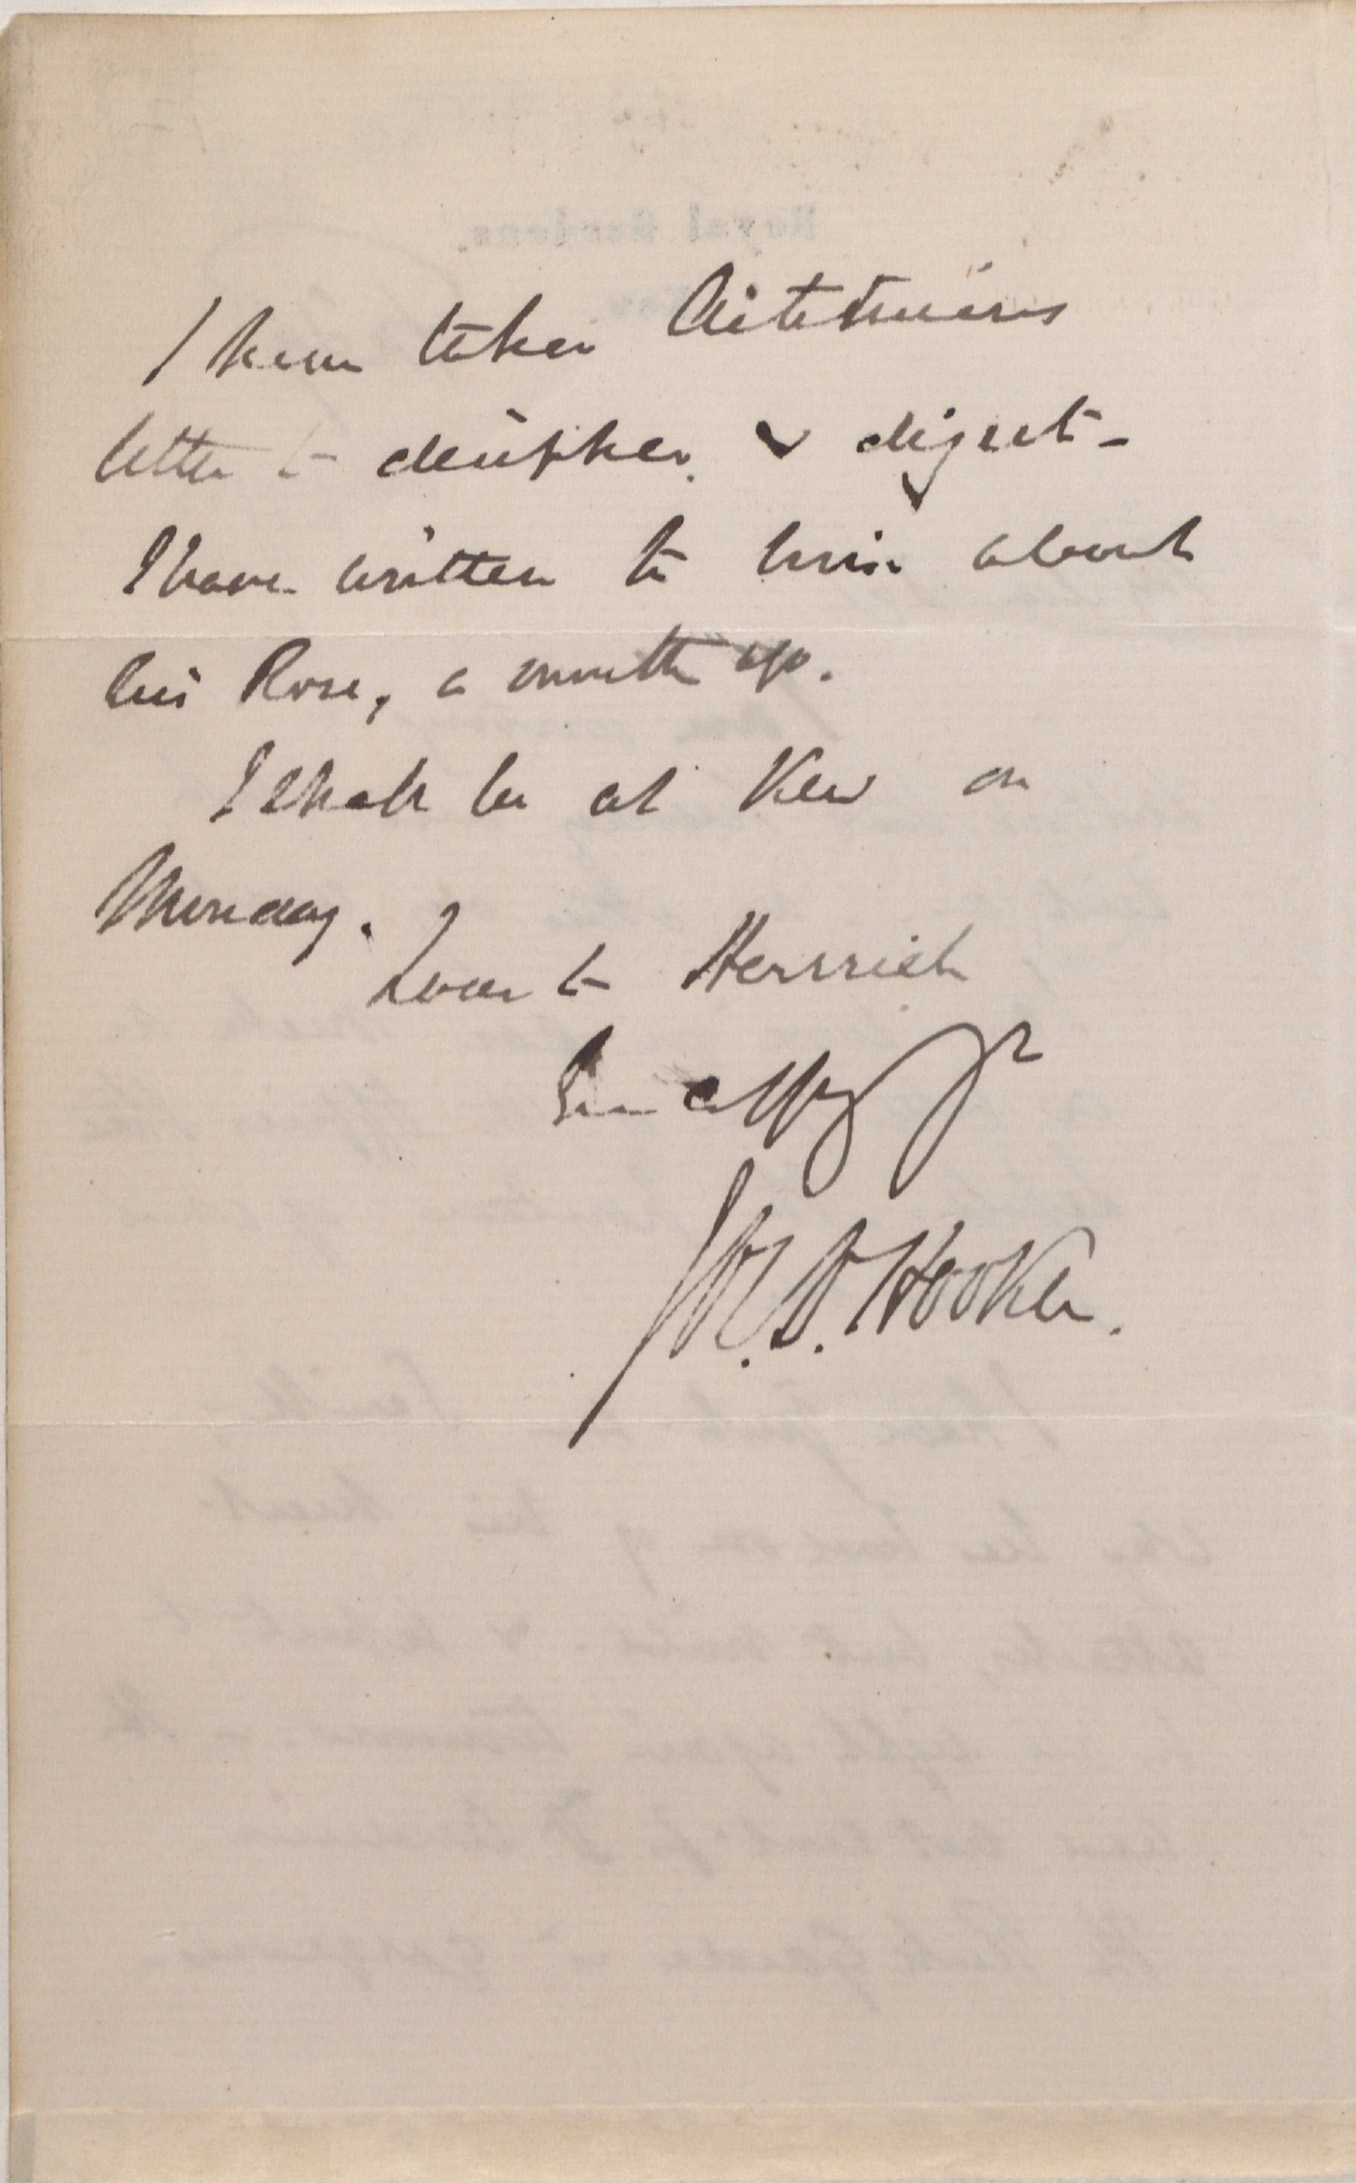 I have taken Aitchison's
letter to decipher & digest –
I have written to him about
his Rose, a month ago.
I shall be at Kew on
Monday.
Love to Harriet
Ever affy yr
Jos. D. Hooker.